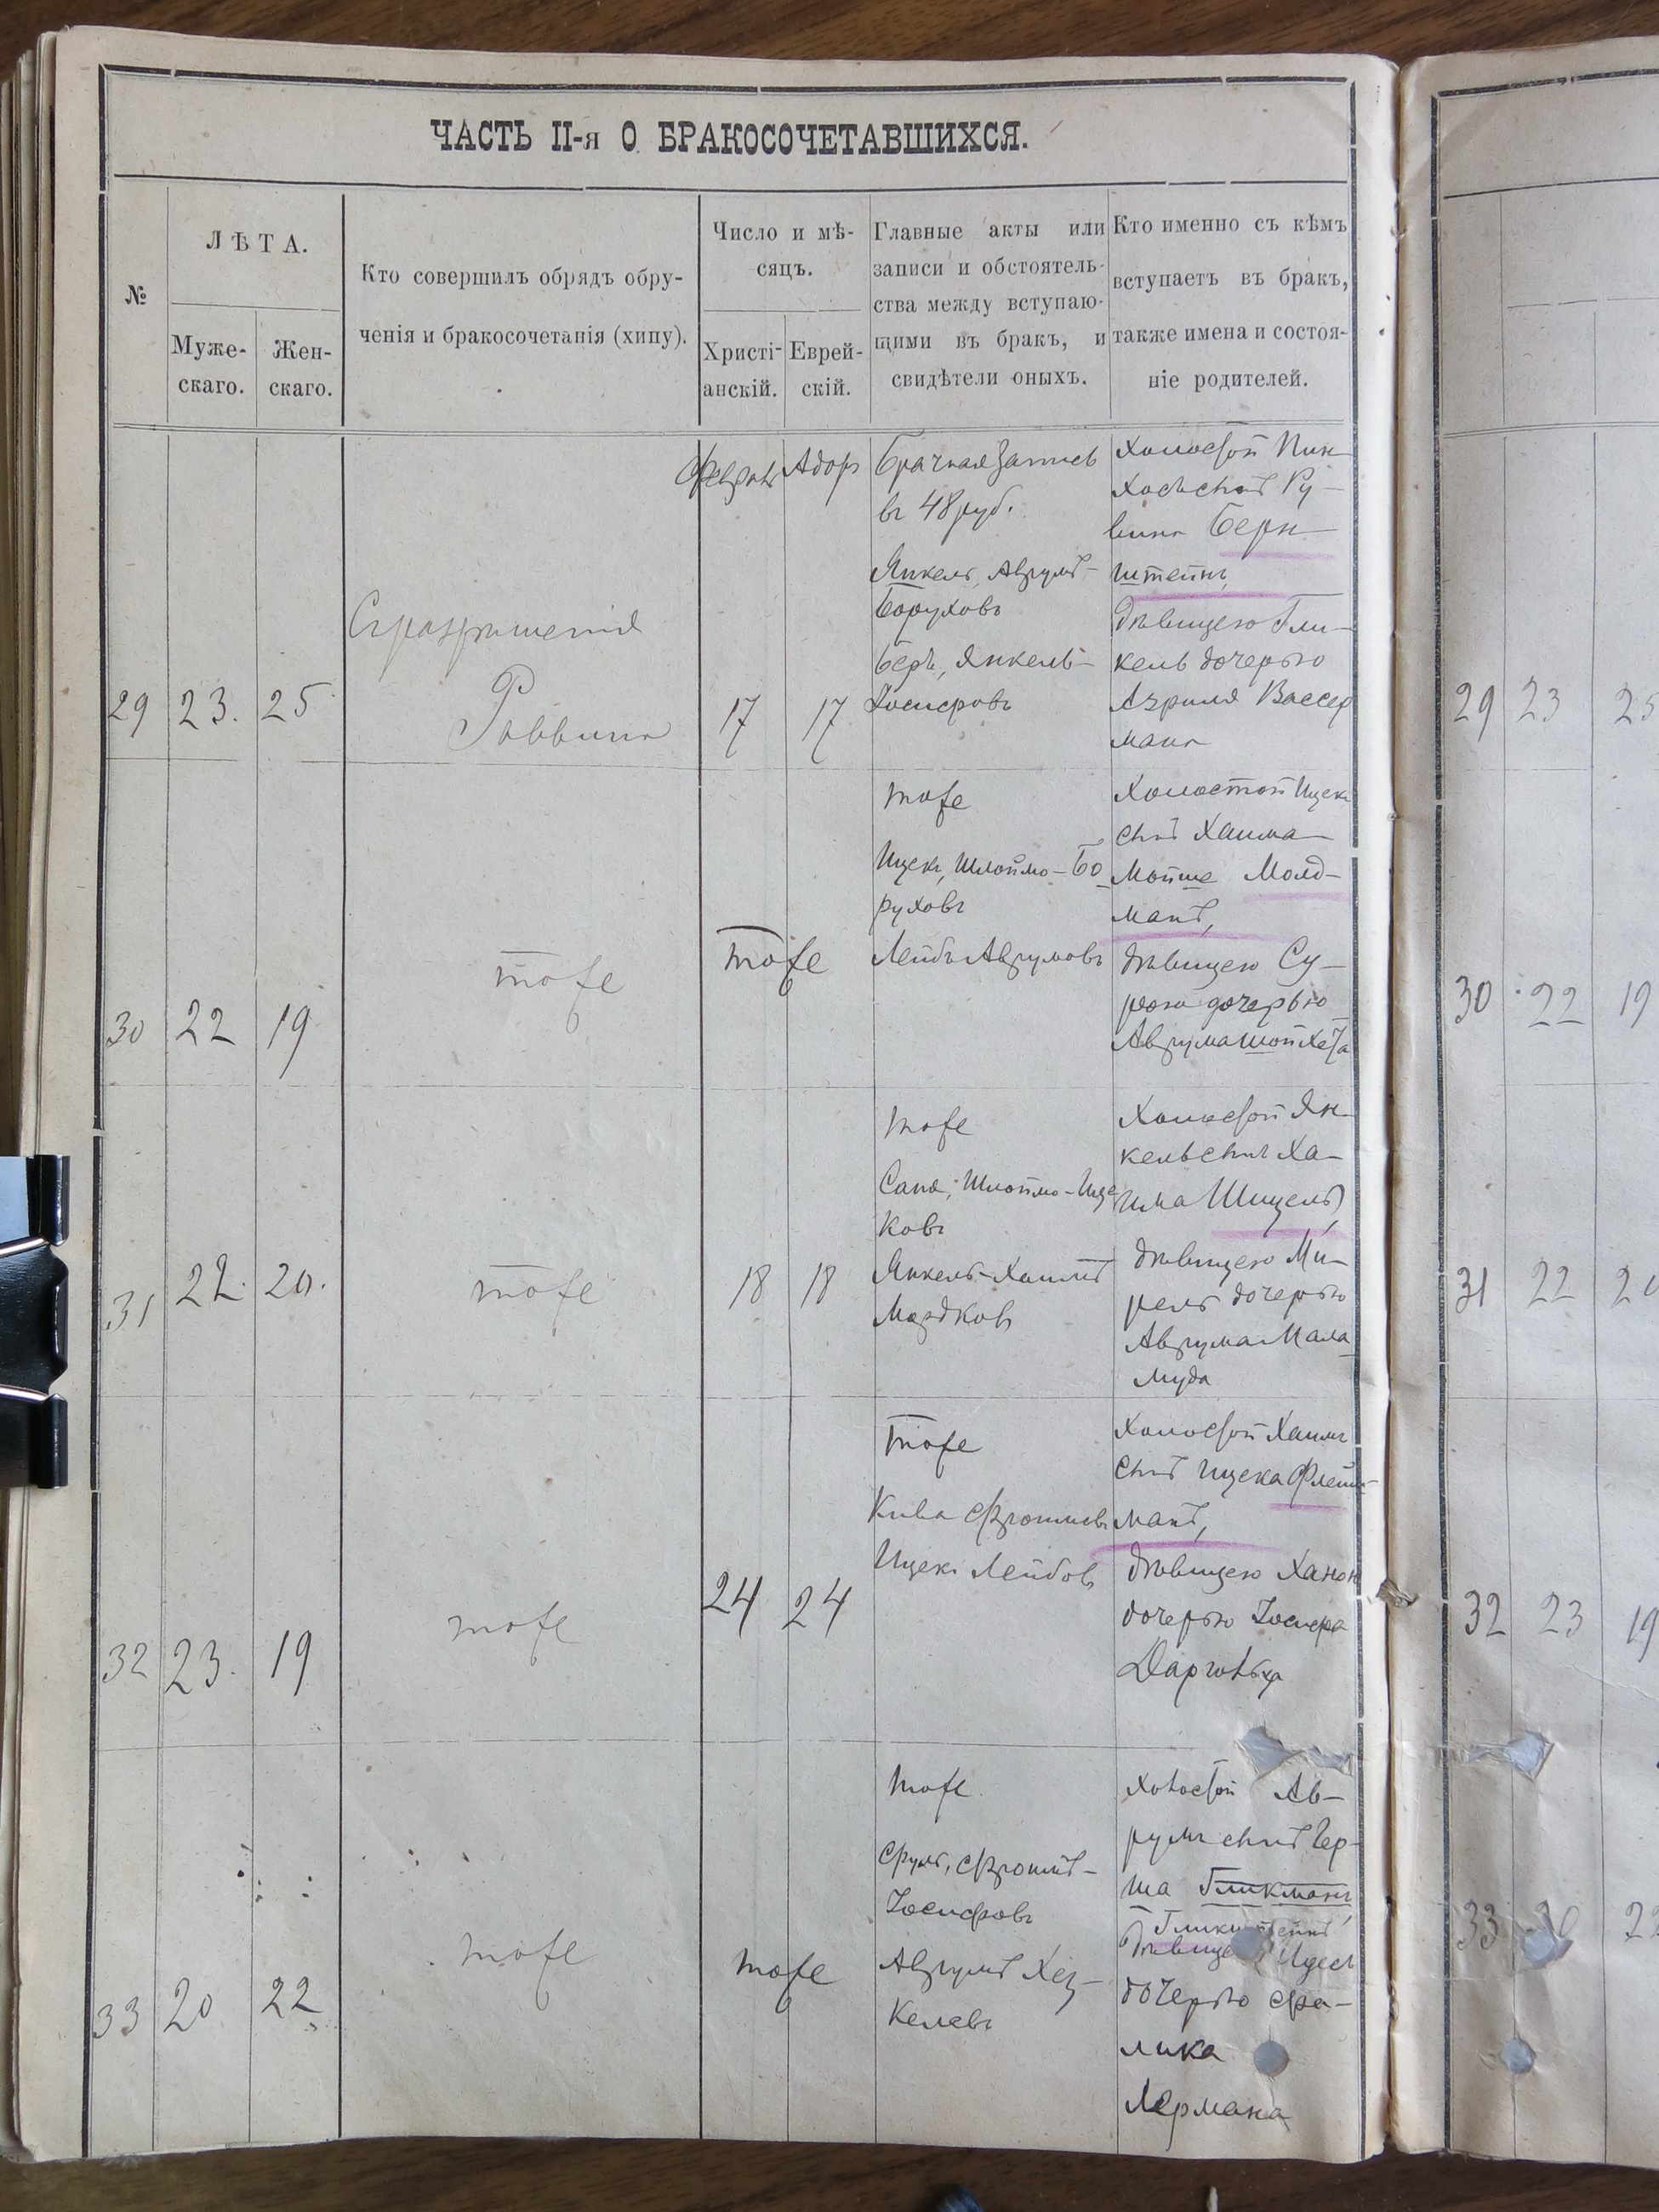 ЧАСТЬ II-я О БРАКОСОЧЕТАВШИХСЯ.
№
ЛѢТА.
Муже-
скаго.
Жен-
скаго.
Кто совершилъ обрядъ обру-
ченія и бракосочетанія (хипу).
Число и мѣ-
сяцъ.
Христі-
анскій.
Еврей-
скій.
Главные акты или
записи и обстоятель-
ства между вступаю-
щими въ бракъ, и
свидѣтели оныхъ.
Кто именно съ кѣмъ
вступаетъ въ бракъ,
также имена и состоя-
ніе родителей.
29
23.
25
Съ разрешенія
Раввина
Февраль
17
Адоръ
17
Брачная запись
въ 48 руб.
Янкель, Аврумъ-
Боруховъ
Беръ, Янкель-
Іосифовъ
Холостой Пин
хосъ сынъ Ру-
вина Берн
штейнъ,
дѣвицею Гли-
кель дочерью
Азриля Вассер
мана
30
22
19
тоже
тоже
тоже
Ицекъ, Шлоймо-Бо
руховъ
Лейбъ Аврумовъ
Холостой Ицекъ
сынъ Хаима-
Мойше Молд-
манъ,
дѣвицею Су-
рою дочерью
Аврума Шойхета
31
22.
20.
тоже
18
18
тоже
Сапа, Шлоймо-Ице
ковъ
Янкель-Хаимъ
Мордковъ
Холостой Ян-
кель сынъ Ха-
има Шицель,
дѣвицею Ми-
рель дочерью
Аврума Мала
муда
32
23.
19
тоже
24
24
тоже
Кива Фроимовъ
Ицекъ Лейбовъ
Холостой Хаимъ
сынъ Ицека Флейш-
манъ,
дѣвицею Ханою
дочерью Іосифа
33
20
22
тоже
тоже
тоже
Сруль, Фроимъ-
Іосифовъ
Аврумъ Хец-
келевъ
Холостой Ав-
румъ сынъ Гер-
ша Гликманъ,
дочерью
лика
Лермана
29
23
25
30
22
19
31
22
32
23
19
33
20